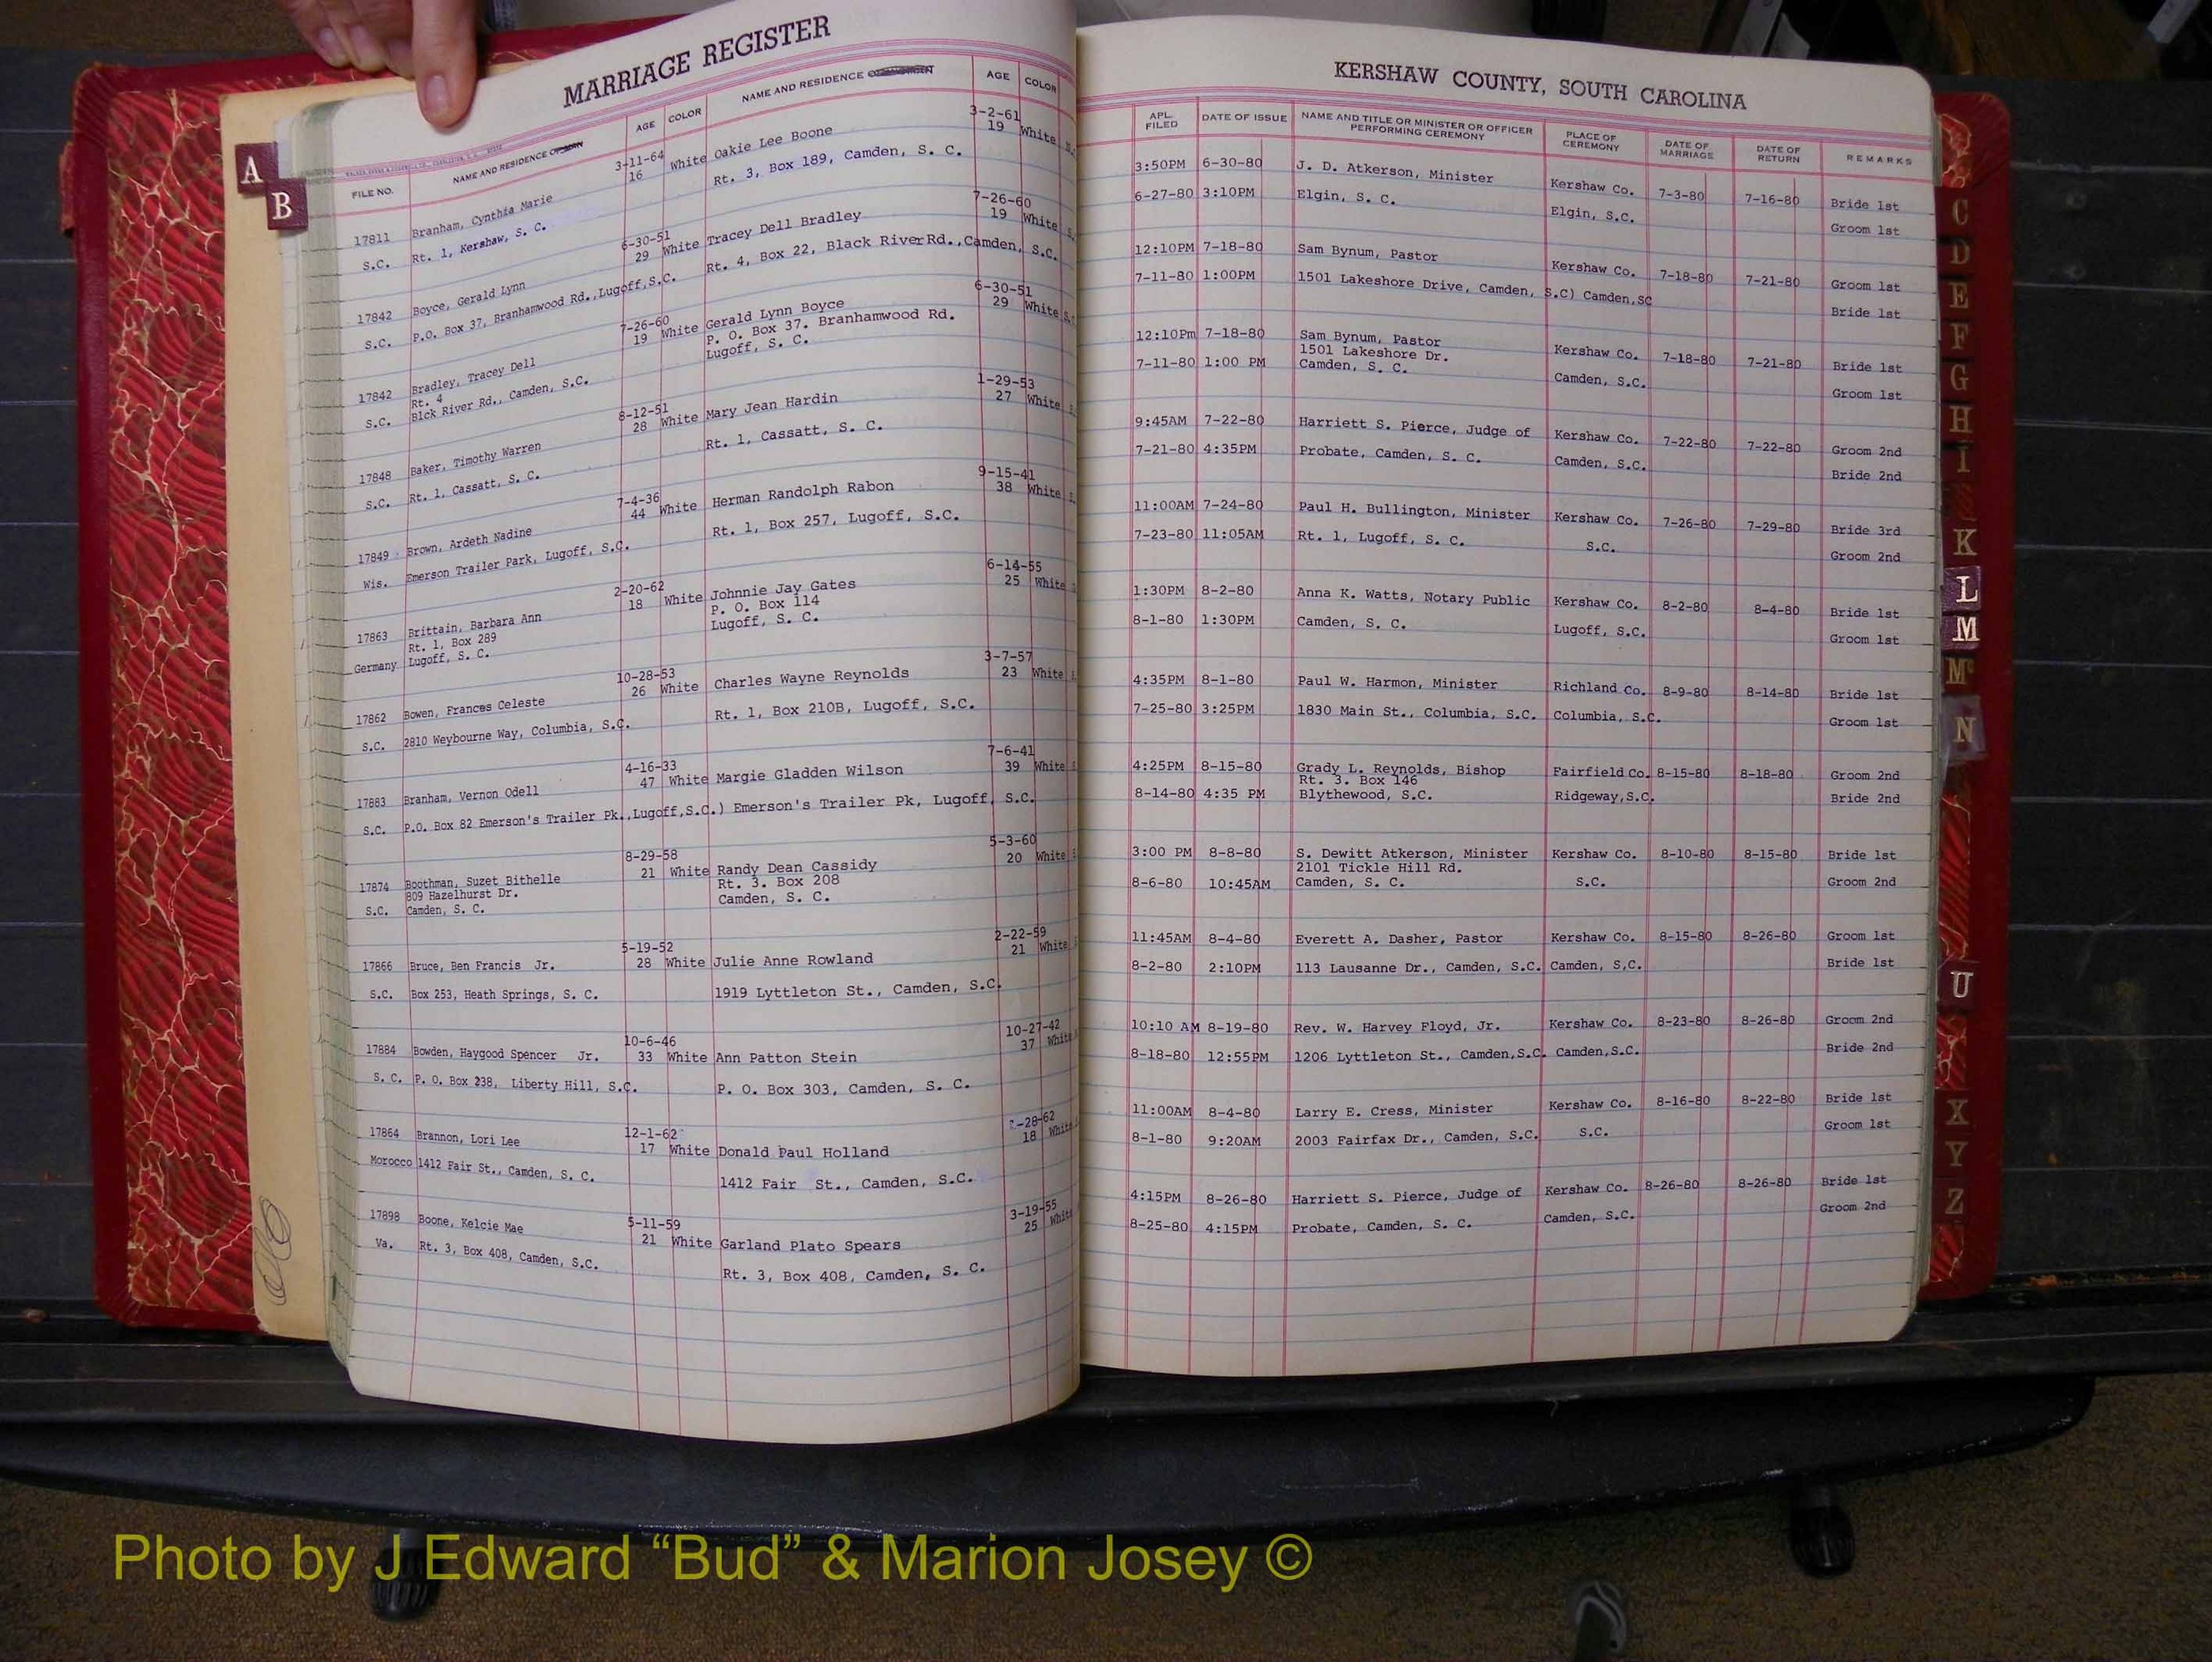 MARRIAGE REGISTER
FILE NO. NAME AND RESIDENCE AGE COLOR NAME AND RESIDENCE AGE COLOR
A
B
17811 Branham, Cynthia Marie 3-11-64 16 White Oakie Lee Boone 3-2-61 19 White
S.C. Rt. 1, Kershaw, S. C. Rt. 3, Box 189, Camden, S. C.
17842 Boyce, Gerald Lynn 6-30-51 29 White Tracey Dell Bradley 7-26-60 19 White
S.C. P.O. Box 37, Branhamwood Rd.,Lugoff,S.C. Rt. 4, Box 22, Black River Rd.,Camden, S.C.
17842 Bradley, Tracey Dell 7-26-60 19 White Gerald Lynn Boyce 6-30-51 29 White
Rt. 4 P. O. Box 37. Branhamwood Rd.
S.C. Blck River Rd., Camden, S.C. Lugoff, S. C.
17848 Baker, Timothy Warren 8-12-51 28 White Mary Jean Hardin 1-29-53 27 White
S.C. Rt. 1, Cassatt, S. C. Rt. 1, Cassatt, S. C.
17849 Brown, Ardeth Nadine 7-4-36 44 White Herman Randolph Rabon 9-15-41 38 White
Wis. Emerson Trailer Park, Lugoff, S.C. Rt. 1, Box 257, Lugoff, S.C.
17863 Brittain, Barbara Ann 2-20-62 18 White Johnnie Jay Gates 6-14-55 25 White
Rt. 1, Box 289 P. O. Box 114
Germany Lugoff, S. C. Lugoff, S. C.
17862 Bowen, Frances Celeste 10-28-53 26 White Charles Wayne Reynolds 3-7-57 23 White
S.C. 2810 Weybourne Way, Columbia, S.C. Rt. 1, Box 210B, Lugoff, S.C.
17883 Branham, Vernon Odell 4-16-33 47 White Margie Gladden Wilson 7-6-41 39 White
S.C. P.O. Box 82 Emerson's Trailer Pk.,Lugoff,S.C.) Emerson's Trailer Pk, Lugoff, S.C.
17874 Boothman, Suzet Bithelle 8-29-58 21 White Randy Dean Cassidy 5-3-60 20 White
809 Hazelhurst Dr. Rt. 3. Box 208
S.C. Camden, S. C. Camden, S. C.
17866 Bruce, Ben Francis Jr. 5-19-52 28 White Julie Anne Rowland 2-22-59 21 White
S.C. Box 253, Heath Springs, S. C. 1919 Lyttleton St., Camden, S.C.
17884 Bowden, Haygood Spencer Jr. 10-6-46 33 White Ann Patton Stein 10-27-42 37 White
S. C. P. O. Box 238, Liberty Hill, S.C. P. O. Box 303, Camden, S. C.
17864 Brannon, Lori Lee 12-1-62 17 White Donald Paul Holland -28-62 18 White
Morocco 1412 Fair St., Camden, S. C. 1412 Fair St., Camden, S.C.
17898 Boone, Kelcie Mae 5-11-59 21 White Garland Plato Spears 3-19-55 25 White
Va. Rt. 3, Box 408, Camden, S.C. Rt. 3, Box 408, Camden, S. C.
KERSHAW COUNTY, SOUTH CAROLINA
APL. FILED DATE OF ISSUE NAME AND TITLE OR MINISTER OR OFFICER PERFORMING CEREMONY PLACE OF CEREMONY DATE OF MARRIAGE DATE OF RETURN REMARKS
3:50PM 6-30-80 J. D. Atkerson, Minister Kershaw Co. 7-3-80 7-16-80 Bride 1st
6-27-80 3:10PM Elgin, S. C. Elgin, S.C. Groom 1st
12:10PM 7-18-80 Sam Bynum, Pastor Kershaw Co. 7-18-80 7-21-80 Groom 1st
7-11-80 1:00PM 1501 Lakeshore Drive, Camden, S.C) Camden,SC Bride 1st
12:10Pm 7-18-80 Sam Bynum, Pastor Kershaw Co. 7-18-80 7-21-80 Bride 1st
1501 Lakeshore Dr.
7-11-80 1:00 PM Camden, S. C. Camden, S.C. Groom 1st
9:45AM 7-22-80 Harriett S. Pierce, Judge of Kershaw Co. 7-22-80 7-22-80 Groom 2nd
7-21-80 4:35PM Probate, Camden, S. C. Camden, S.C. Bride 2nd
11:00AM 7-24-80 Paul H. Bullington, Minister Kershaw Co. 7-26-80 7-29-80 Bride 3rd
7-23-80 11:05AM Rt. 1, Lugoff, S. C. S.C. Groom 2nd
1:30PM 8-2-80 Anna K. Watts, Notary Public Kershaw Co. 8-2-80 8-4-80 Bride 1st
8-1-80 1:30PM Camden, S. C. Lugoff, S.C. Groom 1st
4:35PM 8-1-80 Paul W. Harmon, Minister Richland Co. 8-9-80 8-14-80 Bride 1st
7-25-80 3:25PM 1830 Main St., Columbia, S.C. Columbia, S.C. Groom 1st
4:25PM 8-15-80 Grady L. Reynolds, Bishop Fairfield Co. 8-15-80 8-18-80 Groom 2nd
Rt. 3. Box 146
8-14-80 4:35 PM Blythewood, S.C. Ridgeway,S.C. Bride 2nd
3:00 PM 8-8-80 S. Dewitt Atkerson, Minister Kershaw Co. 8-10-80 8-15-80 Bride 1st
2101 Tickle Hill Rd.
8-6-80 10:45AM Camden, S. C. S.C. Groom 2nd
11:45AM 8-4-80 Everett A. Dasher, Pastor Kershaw Co. 8-15-80 8-26-80 Groom 1st
8-2-80 2:10PM 113 Lausanne Dr., Camden, S.C. Camden, S,C. Bride 1st
10:10 AM 8-19-80 Rev. W. Harvey Floyd, Jr. Kershaw Co. 8-23-80 8-26-80 Groom 2nd
8-18-80 12:55PM 1206 Lyttleton St., Camden,S.C. Camden,S.C. Bride 2nd
11:00AM 8-4-80 Larry E. Cress, Minister Kershaw Co. 8-16-80 8-22-80 Bride 1st
8-1-80 9:20AM 2003 Fairfax Dr., Camden, S.C. S.C. Groom 1st
4:15PM 8-26-80 Harriett S. Pierce, Judge of Kershaw Co. 8-26-80 8-26-80 Bride 1st
8-25-80 4:15PM Probate, Camden, S. C. Camden, S.C. Groom 2nd
C
D
E
F
G
H
I
K
L
M
Mc
N
U
X
Y
Z
Photo by J Edward “Bud” & Marion Josey ©